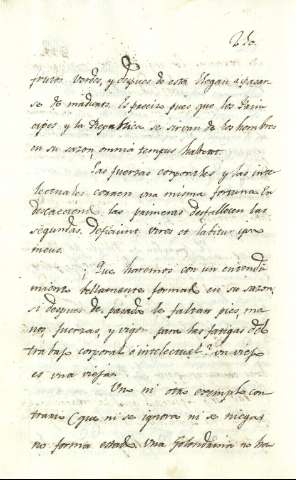 frutos verdes, y despues de esta llegan a pasar
se de maduros. Es preciso pues que los Prin
cipes, y la Republica se sirvan de los hombres
en su sazon, omnia tempus habent.
Las fuerzas corporales y las inte
lectuales corren una misma fortuna. En
descaeciendo las primeras desfallecen las
segundas. deficiunt vires et labitur
¿Que haremos con un entendi
miento bellamente formado en su sazon,
si despues de pasado le faltan pies, ma
nos, fuerzas, y vigor para las fatigas del
trabajo corporal é intelectual? un viejo
es una vieja.
Uno ni otro exemplo con
trario (que ni se ignora ni se niega)
no forma estado. Una Golondrina no ha